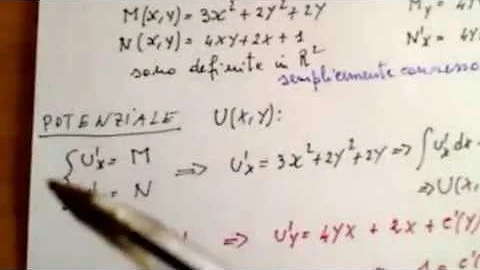 M(x,y) = 3x² + 2y² + 2y M'y = 4y
N(x,y) = 4xy + 2x + 1 N'x = 4y
sono definite in R² semplicemente connesso
POTENZIALE U(x,y):
{ U'x = M ⇒ U'x = 3x² + 2y² + 2y ⇒ ∫ U'x dx
= N ⇒ U(x,
⇒ U'y = 4yx + 2x + c'(y)